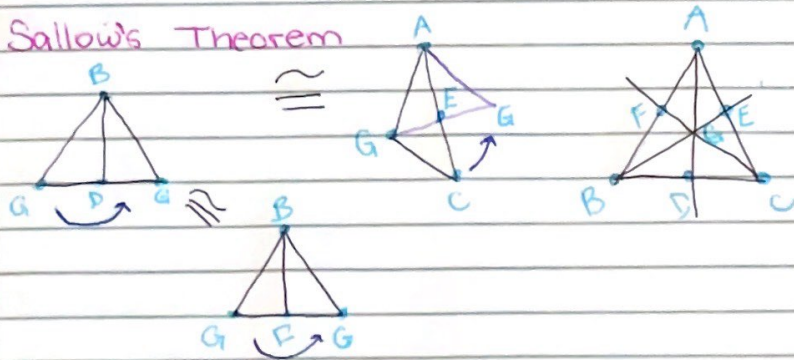 Sallow's Theorem
B
G D G
≅
A
E
G G
C
A
F E
G
B D C
≅
B
G F G